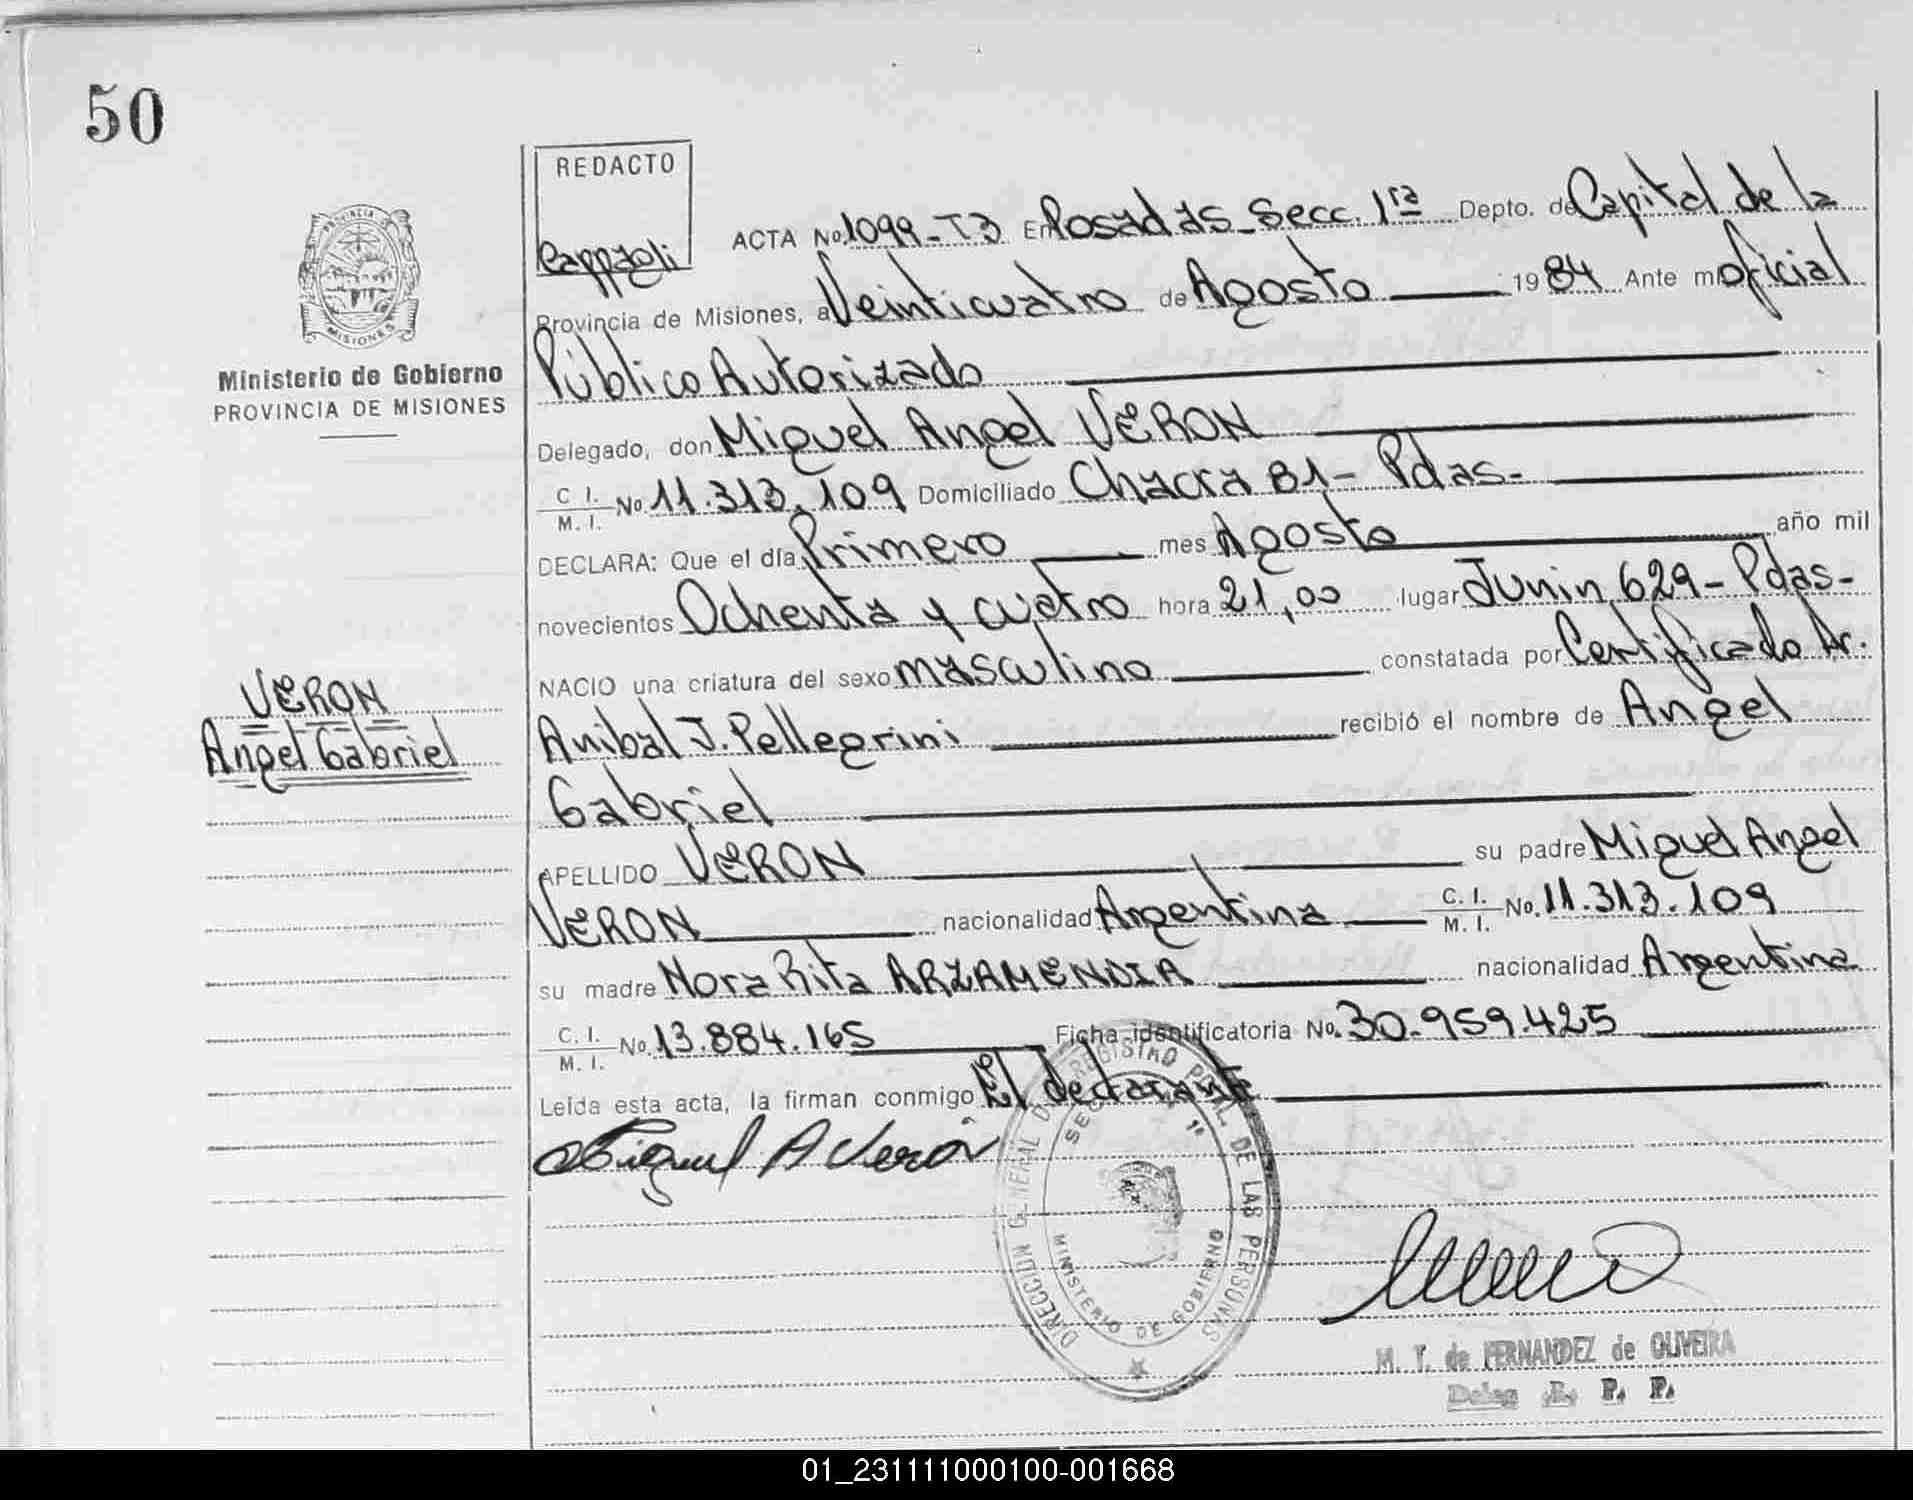 50
REDACTO
Cappzoli
ACTA No. 1099-T3 En Posadas-Secc. 1ra Depto. de Capital de la
Provincia de Misiones, a Veinticuatro de Agosto 1984 Ante mí oficial
Público Autorizado
Delegado, don Miguel Angel VERON
C. I. M. I. No 11.313.109 Domiciliado Chacra 81- Pdas-
DECLARA: Que el día Primero mes Agosto año mil
novecientos Ochenta y cuatro hora 21,00 lugar Junin 629-Pdas-
NACIO una criatura del sexo masculino constatada por Certificado Dr.
Anibal J. Pellegrini recibió el nombre de Angel
Gabriel
APELLIDO VERON su padre Miguel Angel
VERON nacionalidad Argentina C. I. M. I. No. 11.313.109
su madre Nora Rita ARZAMENDIA nacionalidad Argentina
C. I. M. I. No. 13.884.165 Ficha identificatoria No. 30.959.425
Leída esta acta, la firman conmigo El declarante
Miguel A Verón
PROVINCIA
MISIONES
Ministerio de Gobierno
PROVINCIA DE MISIONES
VERON
Angel Gabriel
DIRECCION GENERAL DE REGISTRO PCIAL. DE LAS PERSONAS
SECC 1ª
MINISTERIO DE GOBIERNO
M. T. de FERNANDEZ de OLIVEIRA
Deleg R. P. P.
01_231111000100-001668